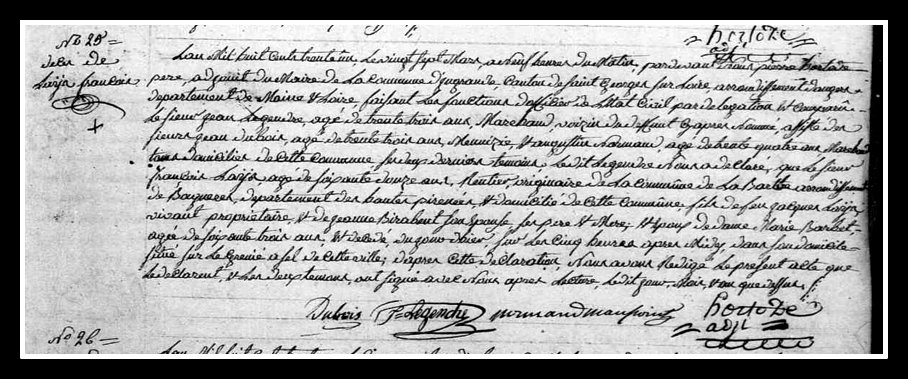 hortode
adjt
No 25
déces de
Layja françois
L'an Mil huit Cent trente un, Le vingt sept Mars, a Neuf heures du Matin, par devant Nous pierre hortode
pere, adjoint du Maire de La Commune d'ingrande, Canton de Saint Georges sur Loire, arrondissement d'angers
departement de Maine & Loire, faisant Les fonctions d'officier de L'Etat Civil par delegation & Comparu
Le Sieur jean Legendre, agé de trente trois ans, Marchand, voizin du deffunt cy après Nommé, assisté des
Sieurs jean dubois, agé de trente trois ans, Menuizier, & augustin Normand, agé de trente quatre ans Marchand
tous domiciliés de Cette Commune, Les deux derniers temoins. Ledit Legendre Nous a declaré, que Le Sieur
françois Layja, agé de soixante douze ans, Rentier, originaire de La Commune de La Barthe arrondissement
de Bagneres, departement des hautes pirenées, & domicilié de Cette Commune, fils de feu jacques Layja
vivant propriétaire, & de jeanne Birabent Son Epouse, ses pere & Mere; & Epoux de dame Marie Barbet
agée de soixante trois ans, Est decedé, du jour d'hier, sur Les Cinq heures apres Midy, dans son domicile
situé sur Le Grenier a sel de Cette ville; d'apres Cette declaration, Nous avons Redigé Le present acte que
Le declarent, & Les deux temoins, ont signé avec Nous après Lecture, Ledit jour, Mois, & an que dessus.
Dubois Js Legendre normand
hortode
adjt
No 26